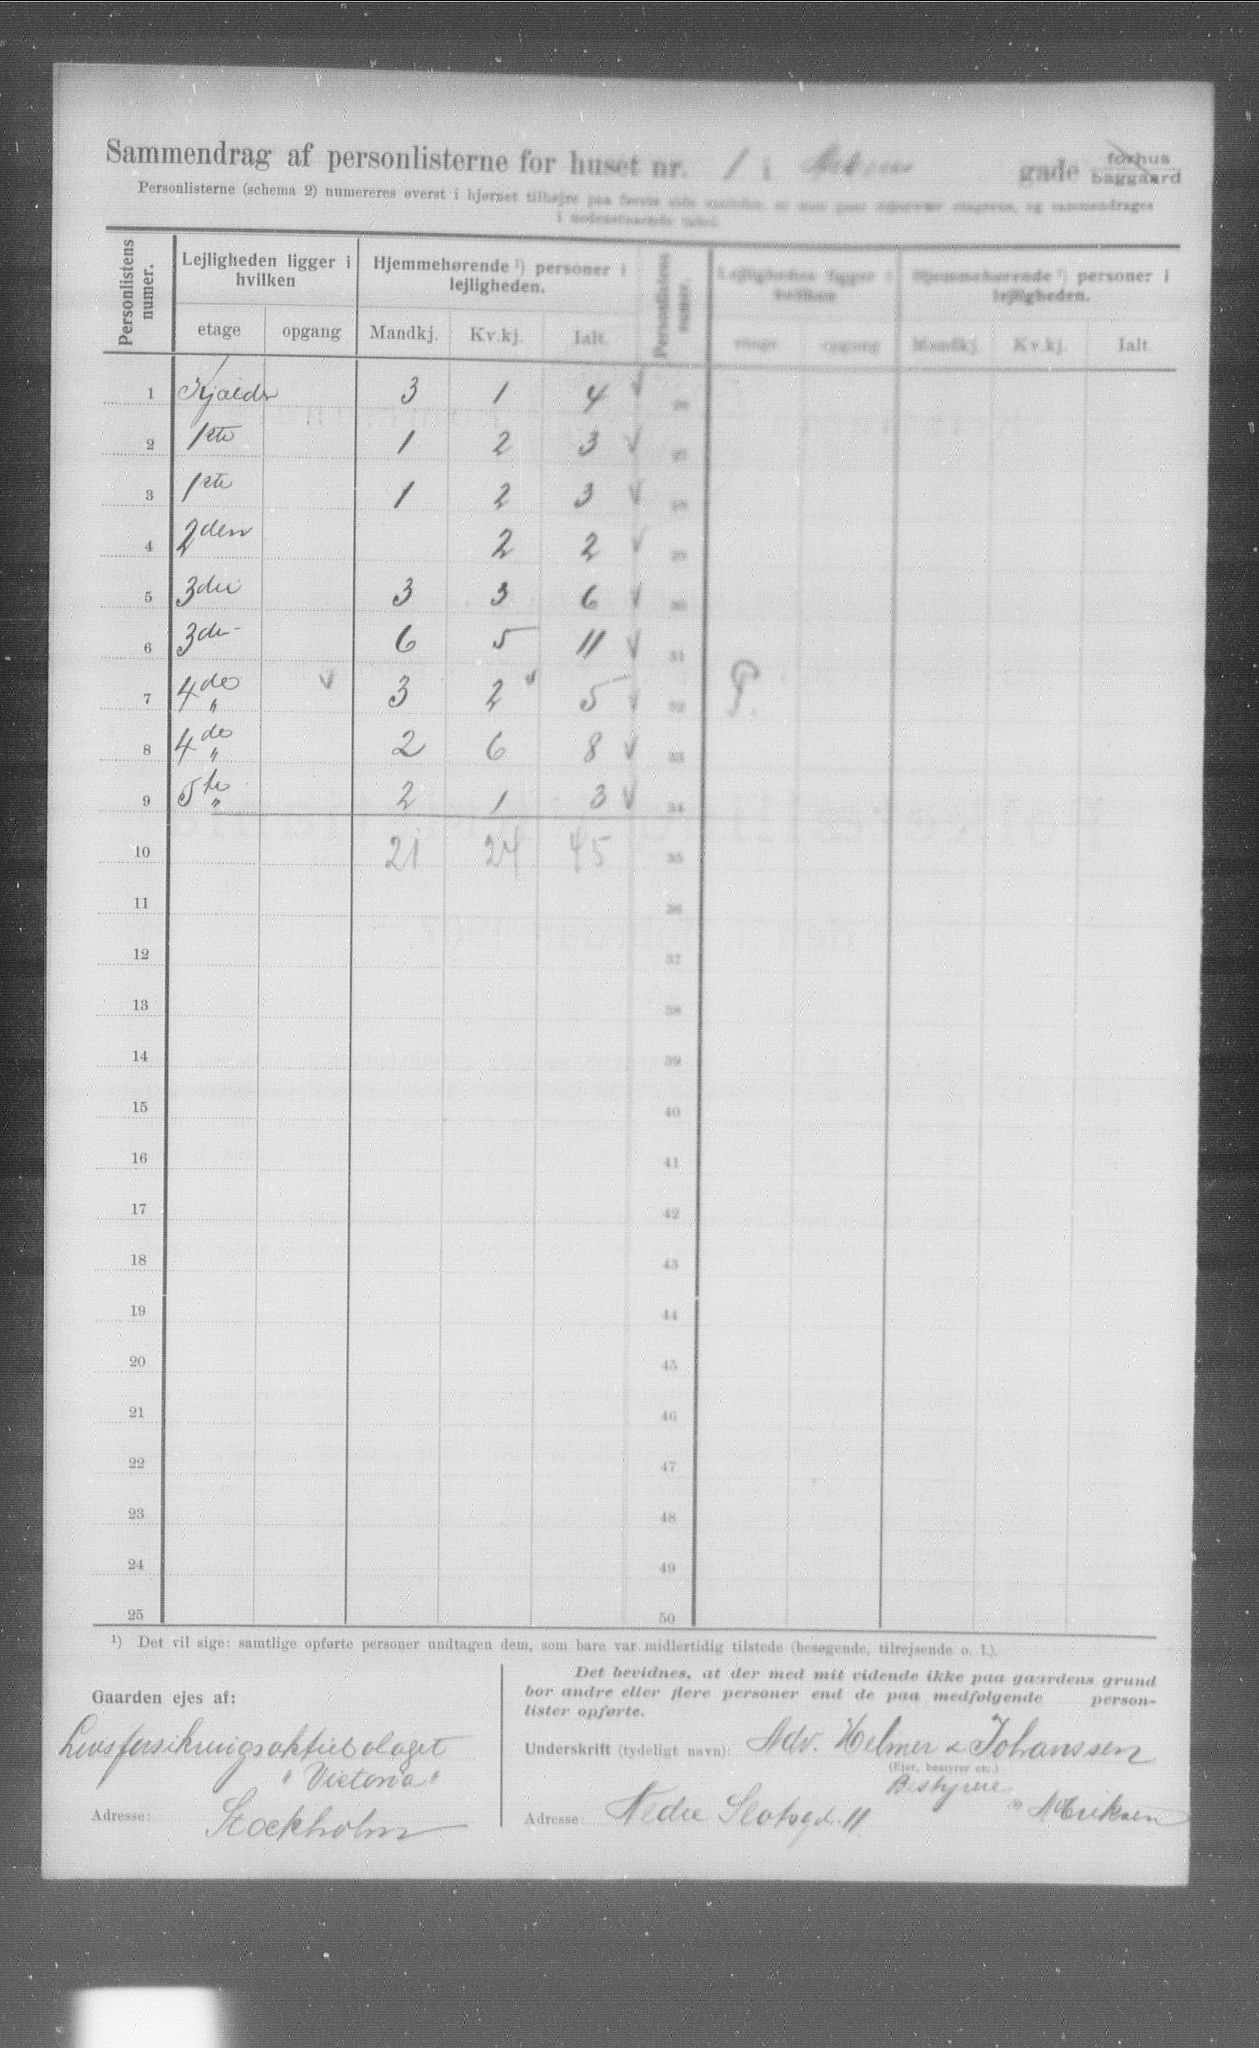 Sammendrag af personlisterne for huset nr. 1 i gade forhus baggaard
Personlisterne (schema 2) numereres øverst i hjørnet tilhøjre paa første side
i nedenstaaende
Personlistens numer. Lejligheden ligger i hvilken Hjemmehørende ¹) personer i lejligheden. Personlistens numer. Lejligheden ligger i hvilken Hjemmehørende ¹) personer i lejligheden.
etage opgang Mandkj. Kv.kj. Ialt. etage opgang Mandkj. Kv.kj. Ialt.
1 Kjælder 3 1 4 26
2 1ste 1 2 3 27
3 1ste 1 2 3 28
4 2den 2 2 29
5 3die 3 3 6 30
6 3die 6 5 11 31
7 4de " 3 2 5 32
8 4de " 2 6 8 33
9 5te " 2 1 3 34
10 21 24 45 35
11 36
12 37
13 38
14 39
15 40
16 41
17 42
18 43
19 44
20 45
21 46
22 47
23 48
24 49
25 50
¹) Det vil sige: samtlige opførte personer undtagen dem, som bare var midlertidig tilstede (besøgende, tilrejsende o. l.).
Gaarden ejes af:
Livsforsikringsaktiebolaget
"Victoria"
Adresse: Stockholm
Det bevidnes, at der med mit vidende ikke paa gaardens grund
bor andre eller flere personer end de paa medfølgende person-
lister opførte.
Underskrift (tydeligt navn): Adv. Helmer & Johanssen
(Ejer, bestyrer etc.)
Bestyrere
Eriksen
Adresse: Nedre Slotsgd. 11